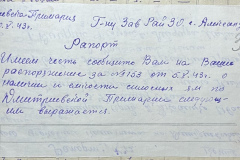 евска Примария
8. 43г.
Г-ну Зав Рай З.О. с.
Рапорт
Имею честь сообщить Вам на Ваше
распоряжение за №1153 от 5.8.43г. о
наличии и емкости силосных ям по
Дмитриевской Примарии следую-
им выражается.